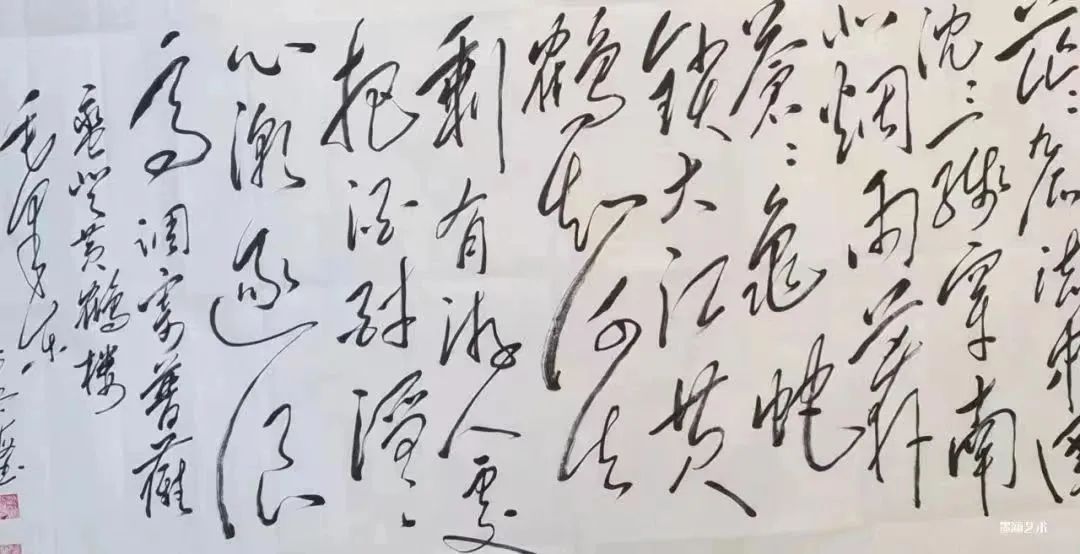 茫々九派流中国
沈々一线穿南
北烟雨莽
苍々龟蛇
锁大江黄
鹤知何去
剩有游人处
把酒酹滔々
心潮逐浪
高 调寄菩萨
蛮登黄鹤楼
毛泽东
艺术